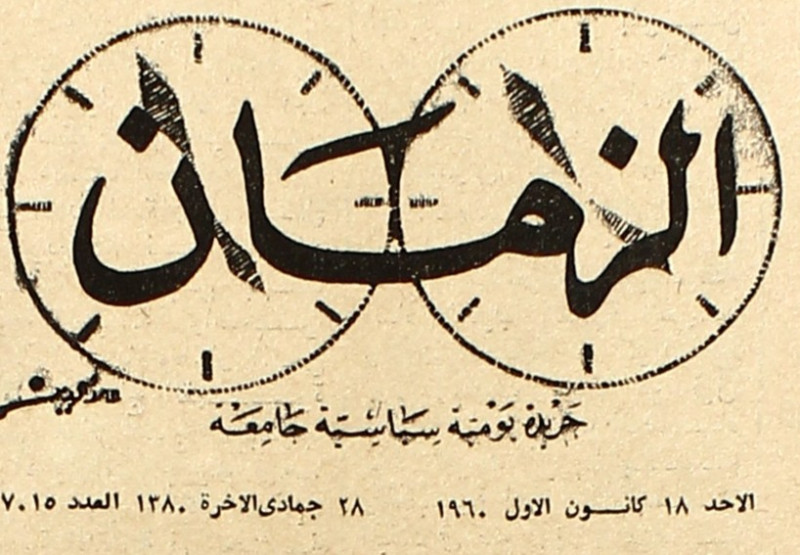 الزمان
جريدة يومية سياسية جامعة
الاحد ١٨ كانـــون الاول ١٩٦٠ ٢٨ جمادى الاخرة ١٣٨٠ العدد ٧٠١٥